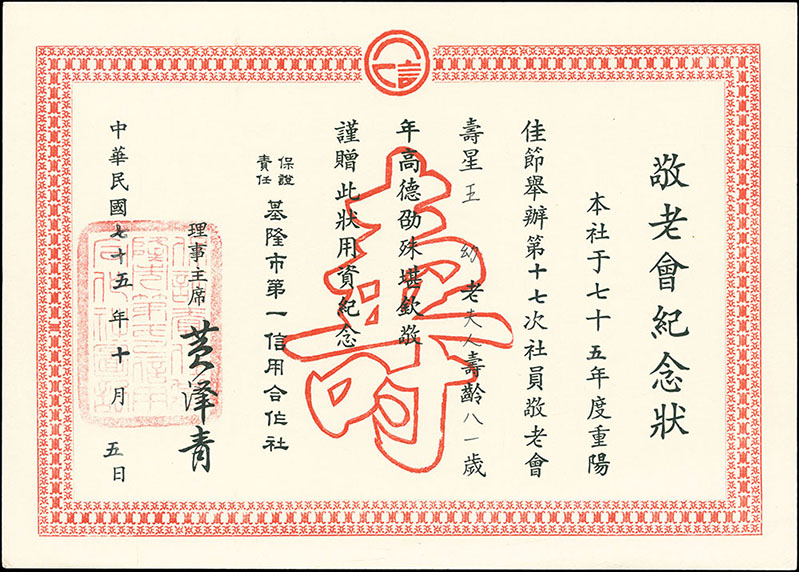 敬老會紀念狀
本社于七十五年度重陽
佳節舉辦第十七次社員敬老會
壽星王 幼 老夫人壽齡八一歲
年高德劭殊堪欽敬
謹贈此狀用資紀念
保證
責任 基隆市第一信用合作社
理事主席 黃澤青
中華民國七十五年十月五日
壽
一信